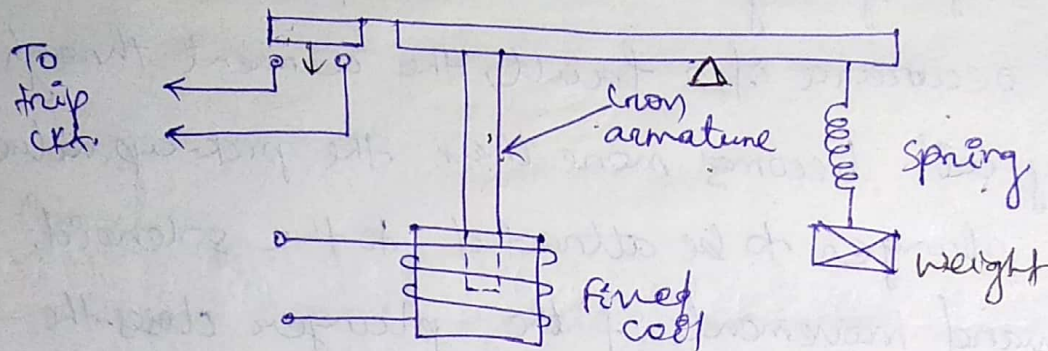 To
trip
ckt.
iron
armature
spring
weight
fixed
coil